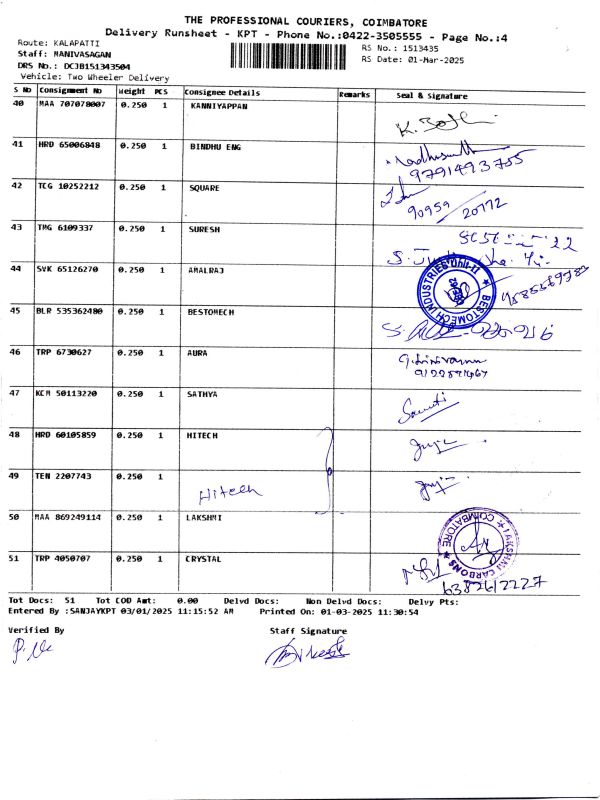 THE PROFESSIONAL COURIERS, COIMBATORE
Delivery Runsheet - KPT - Phone No.:0422-3505555 - Page No.:4
Route: KALAPATTI
RS No.: 1513435
Staff: MANIVASAGAN
RS Date: 01-Mar-2025
DRS No.: DCJB151343504
Vehicle: Two Wheeler Delivery
S No Consignment No Weight PCS Consignee Details Remarks Seal & Signature
40 MAA 707078007 0.250 1 KANNIYAPPAN
41 HRD 65006848 0.250 1 BINDHU ENG
9791493755
42 TCG 10252212 0.250 1 SQUARE
90959 20772
43 TMG 6109337 0.250 1 SURESH
44 SVK 65126270 0.250 1 AMALRAJ
BESTOMECH INDUSTRIES Unit-II
45 BLR 535362480 0.250 1 BESTOMECH
46 TRP 6730627 0.250 1 AURA
47 KCM 50113220 0.250 1 SATHYA
48 HRD 60105859 0.250 1 HITECH
49 TEN 2207743 0.250 1
Hitech
50 MAA 869249114 0.250 1 LAKSHMI
LAKSHMI CARBONS COIMBATORE
51 TRP 4050707 0.250 1 CRYSTAL
6382612227
Tot Docs: 51 Tot COD Amt: 0.00 Delvd Docs: Non Delvd Docs: Delvy Pts:
Entered By :SANJAYKPT 03/01/2025 11:15:52 AM Printed On: 01-03-2025 11:30:54
Verified By Staff Signature